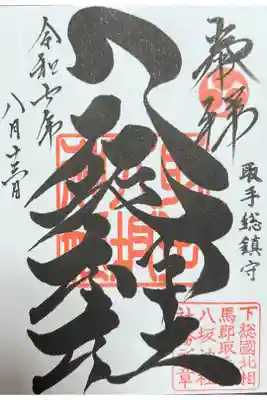 奉拝
取手総鎮守
下総國北相
馬郡取手
八坂神社
社務所章
八坂神社
令和六年